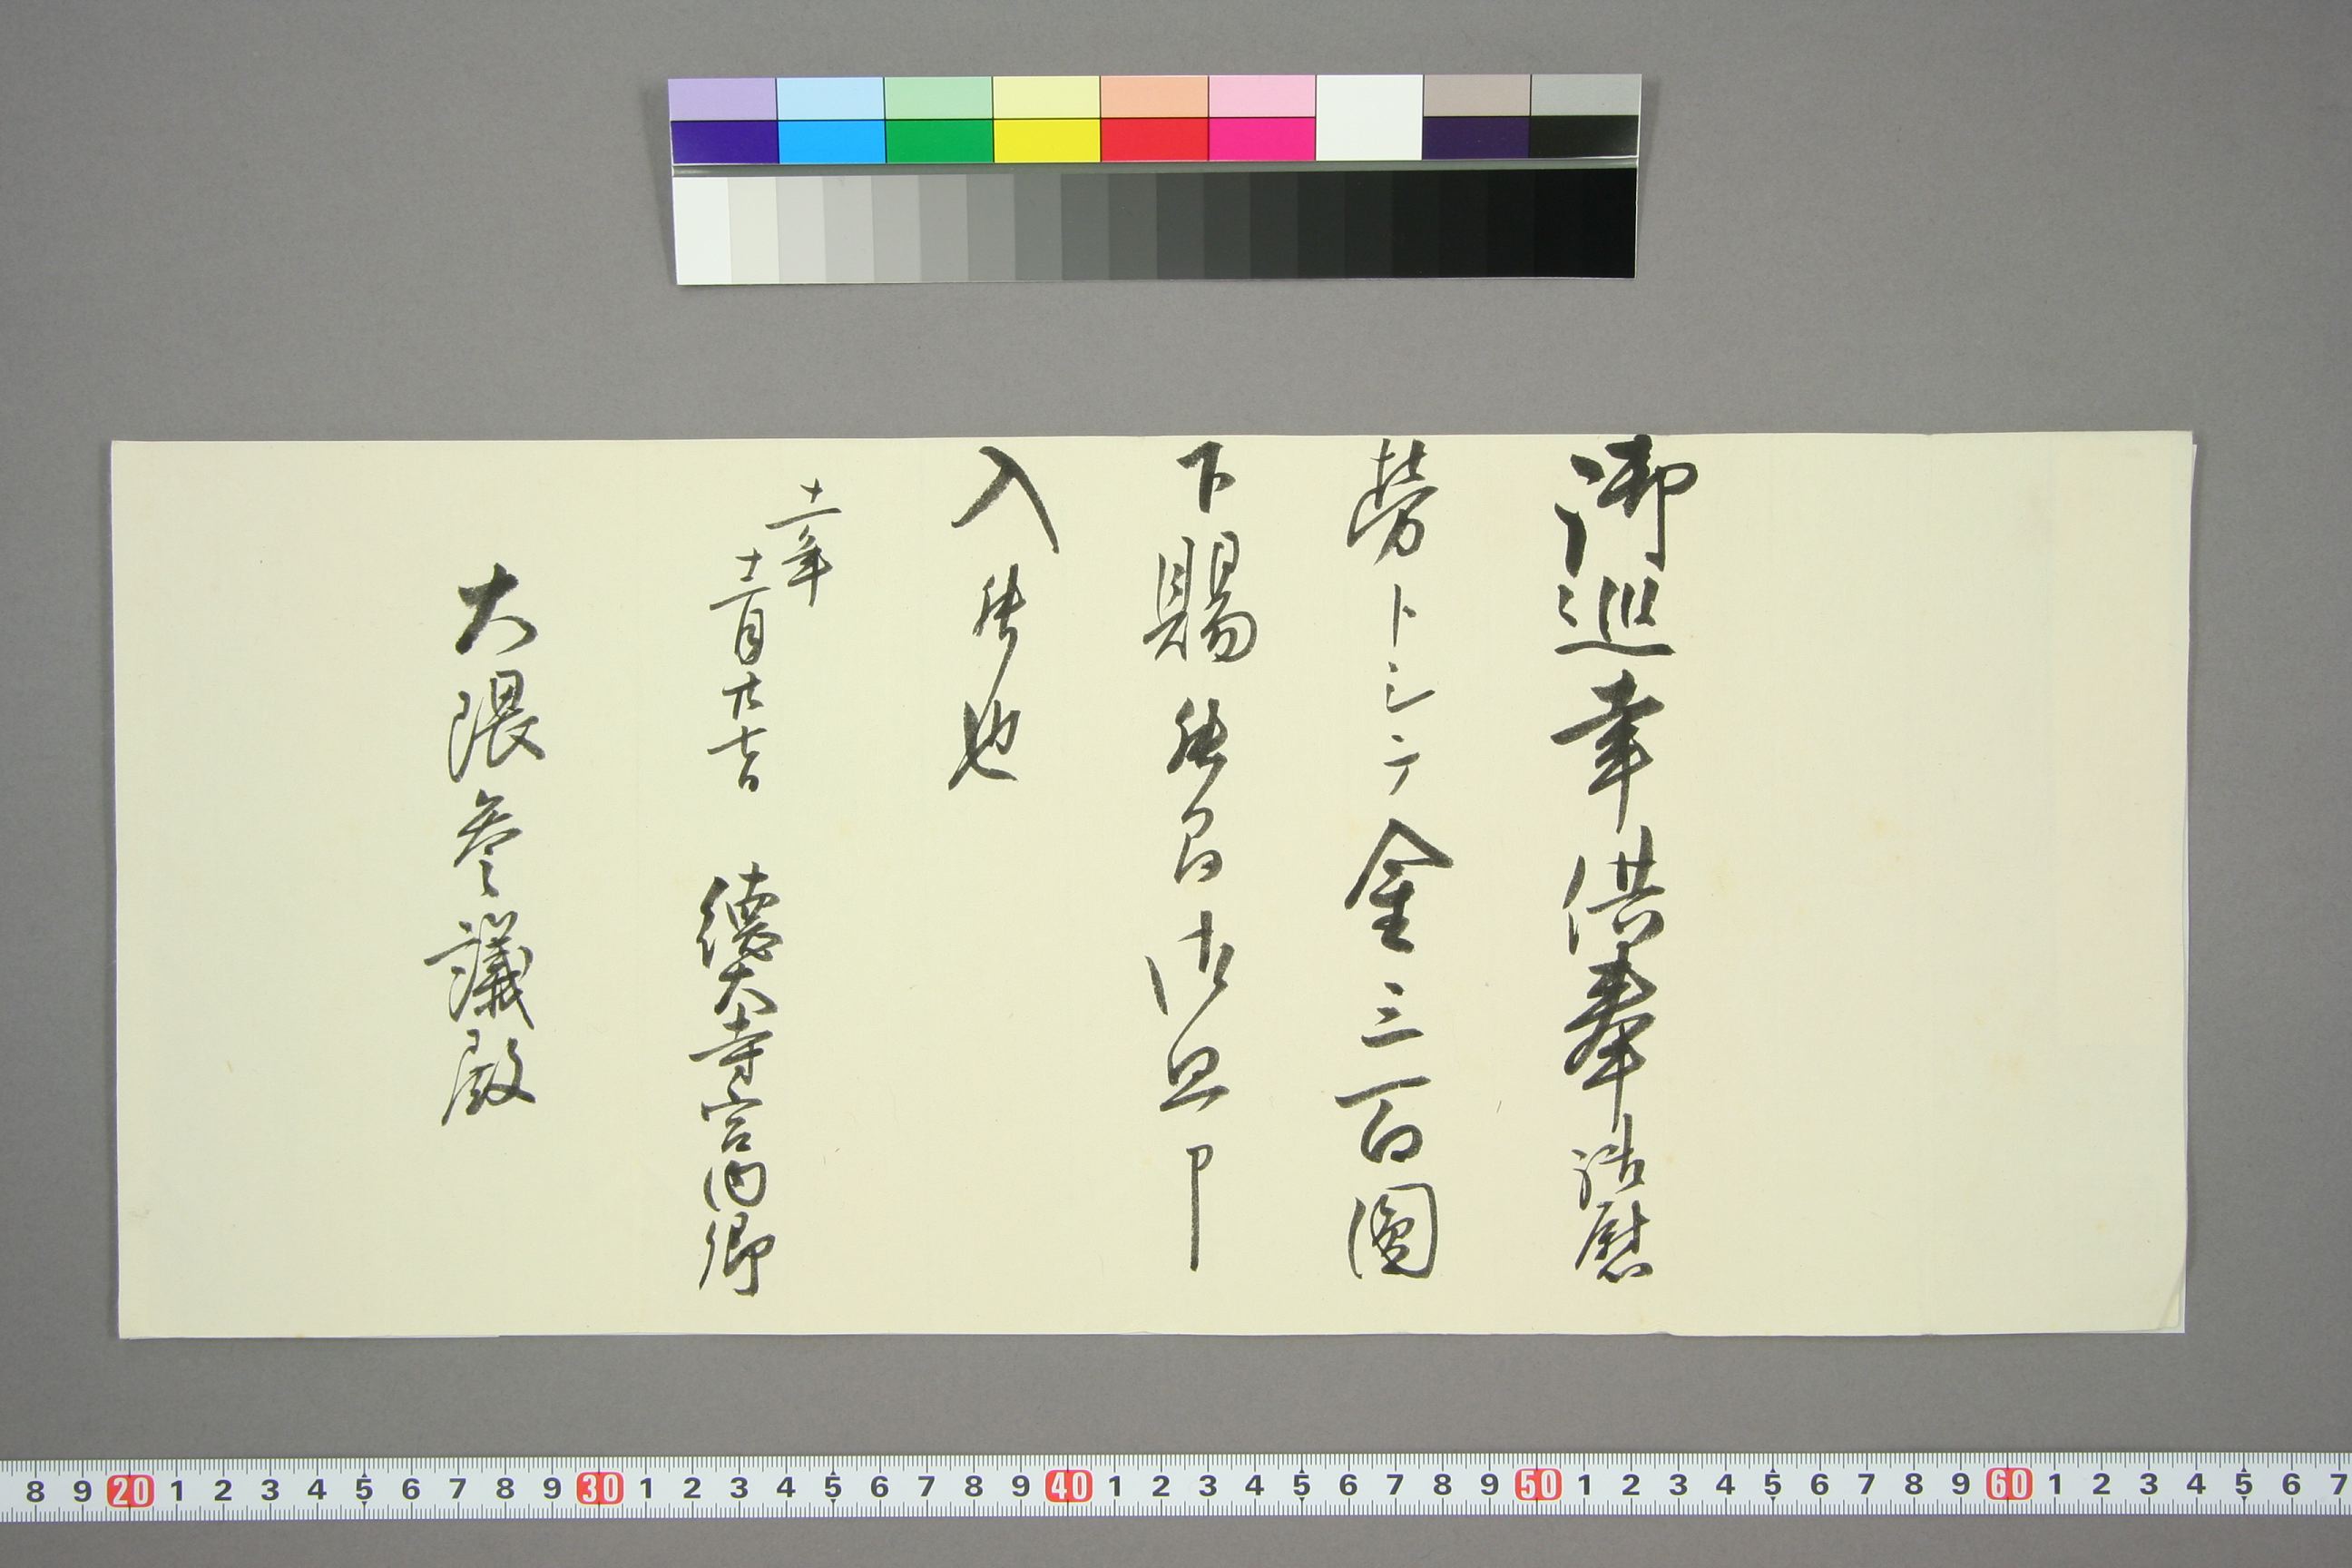 御巡幸供奉諸慰
勞トシテ金三百圓
下賜候間此段申
入候也
十一年
十二月廿七日 德大寺宮内卿
大隈參議殿
8 9 20 1 2 3 4 5 6 7 8 9 30 1 2 3 4 5 6 7 8 9 40 1 2 3 4 5 6 7 8 9 50 1 2 3 4 5 6 7 8 9 60 1 2 3 4 5 6 7